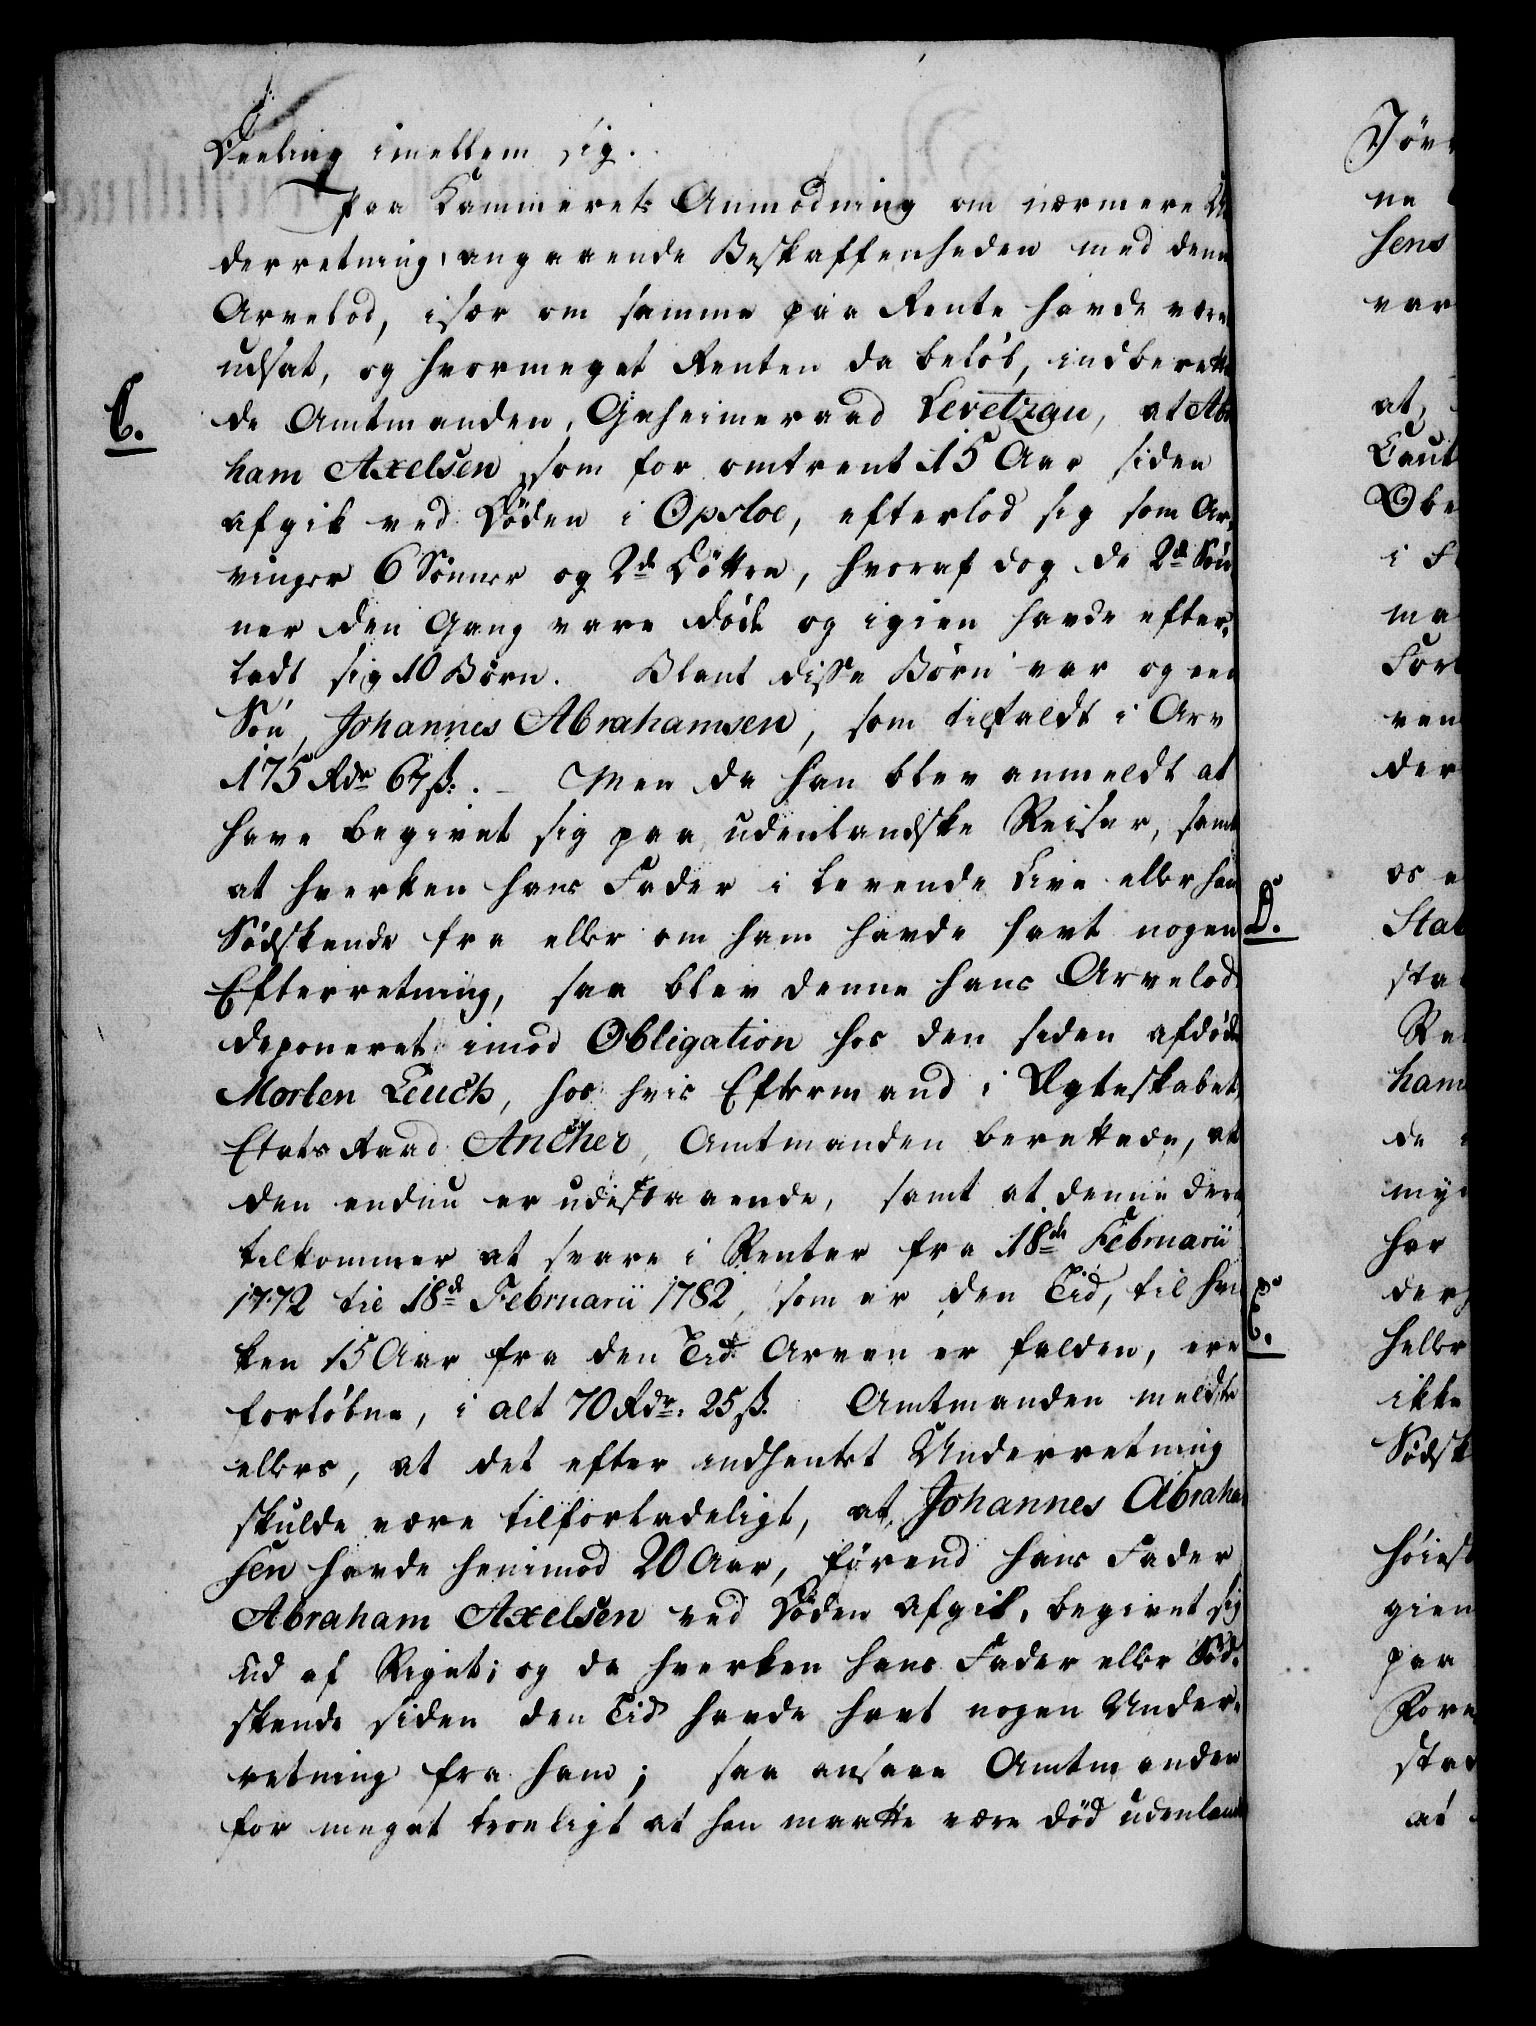 Deeling imellem sig.
Paa Kammerets Anmodning om nærmere U
derretning, angaaende Beskaffenheden med denn
Arvelod, især om samme paa Rente havde være
udsat, og hvormeget Renten da beløb, indberette
C.
de Amtmanden, Geheimeraad Levetzau, at Abra
ham Axelsen, som for omtrent 15 Aar siden
afgik ved Døden i Opsloe, efterlod sig som Ar,
vinger 6 Sønner og 2de Døttre, hvoraf dog de 2de Søn
ner den Gang vare døde og igien havde efter,
ladt sig 10 Børn. Blant disse Børn var og een
Søn, Johannes Abrahamsen, som tilfaldt i Arv
175 Rdr 67 ß. - Men da han blev anmeldt at
have begivet sig paa udenlandske Reiser, samt
at hverken hans Fader i levende Live eller han
Sødskende fra eller om ham havde havt nogen
Efterretning, saa blev denne hans Arvelod
deponeret imod Obligation hos den siden afdøde
Morten Leuch, hos hvis Eftermand i Ægteskabet
Etats Raad Ancher, Amtmanden berettede, at
den endnu er udestaaende, samt at denne der
tilkommer at svare i Renter fra 18de Februarii
1772 til 18de Februarii 1782, som er den Tid, til hvil
ken 15 Aar fra den Tid Arven er falden, ere
forløbne, i alt 70 Rdr. 25 ß. Amtmanden meldte
ellers, at det efter indhentet Underretning
skulde være tilforladeligt, at Johannes Abraham
sen havde henimod 20 Aar, førend hans Fader
Abraham Axelsen ved Døden afgik, begivet sig
ud af Riget; og da hverken hans Fader eller Sød,
skende siden den Tid havde havt nogen Under,
retning fra ham; saa ansaae Amtmanden
for meget troeligt at han maatte være død udenland
D.
E.
ne
sens
var
at,
i
ma
ven
der
os
sta
ham
de
har
heller
ikke
Sødsk
høiest
gien
paa
at